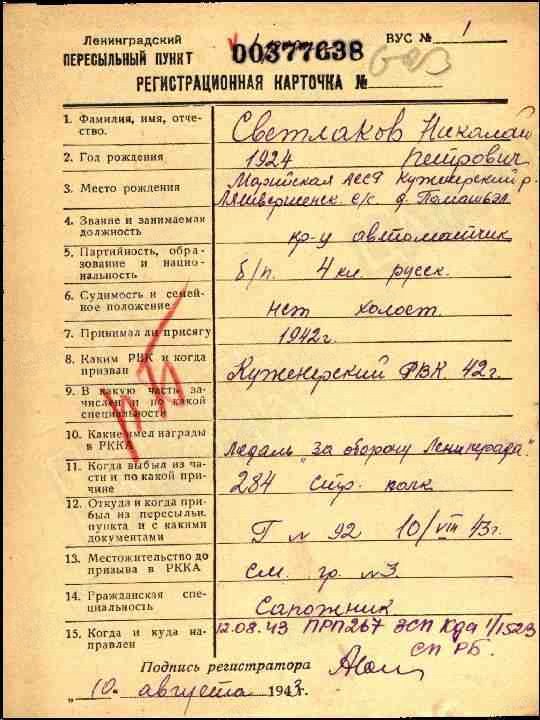 Ленинградский
ПЕРЕСЫЛЬНЫЙ ПУНКТ
ВУС № 1
00377638
РЕГИСТРАЦИОННАЯ КАРТОЧКА №
1. Фамилия, имя, отче-
ство.
Светлаков Николай
Петрович
2. Год рождения
1924
3. Место рождения
Марийская АССР Куженерский р.
с/с. д.
4. Звание и занимаемая
должность
кр-ц автоматчик
5. Партийность, обра-
зование и нацио-
нальность
б/п. 4 кл русск.
6. Судимость и семей-
ное положение
нет холост.
7. Принимал ли присягу
1942г.
8. Каким РВК и когда
призван
Куженерский РВК 42г.
9. В какую часть за-
числен и по какой
специальности
10. Какие имел награды
в РККА
Медаль „за оборону Ленинграда".
11. Когда выбыл из ча-
сти и по какой при-
чине
284 стр. полк
12. Откуда и когда при-
был из пересыльн.
пункта и с какими
документами
Г № 92 10/VIII 43г.
13. Местожительство до
призыва в РККА
См. гр. №3.
14. Гражданская спе-
циальность
Сапожник
15. Когда и куда на-
правлен
12.08.43 ПРП267 ЗСП
Подпись регистратора
„10" августа 1943г.